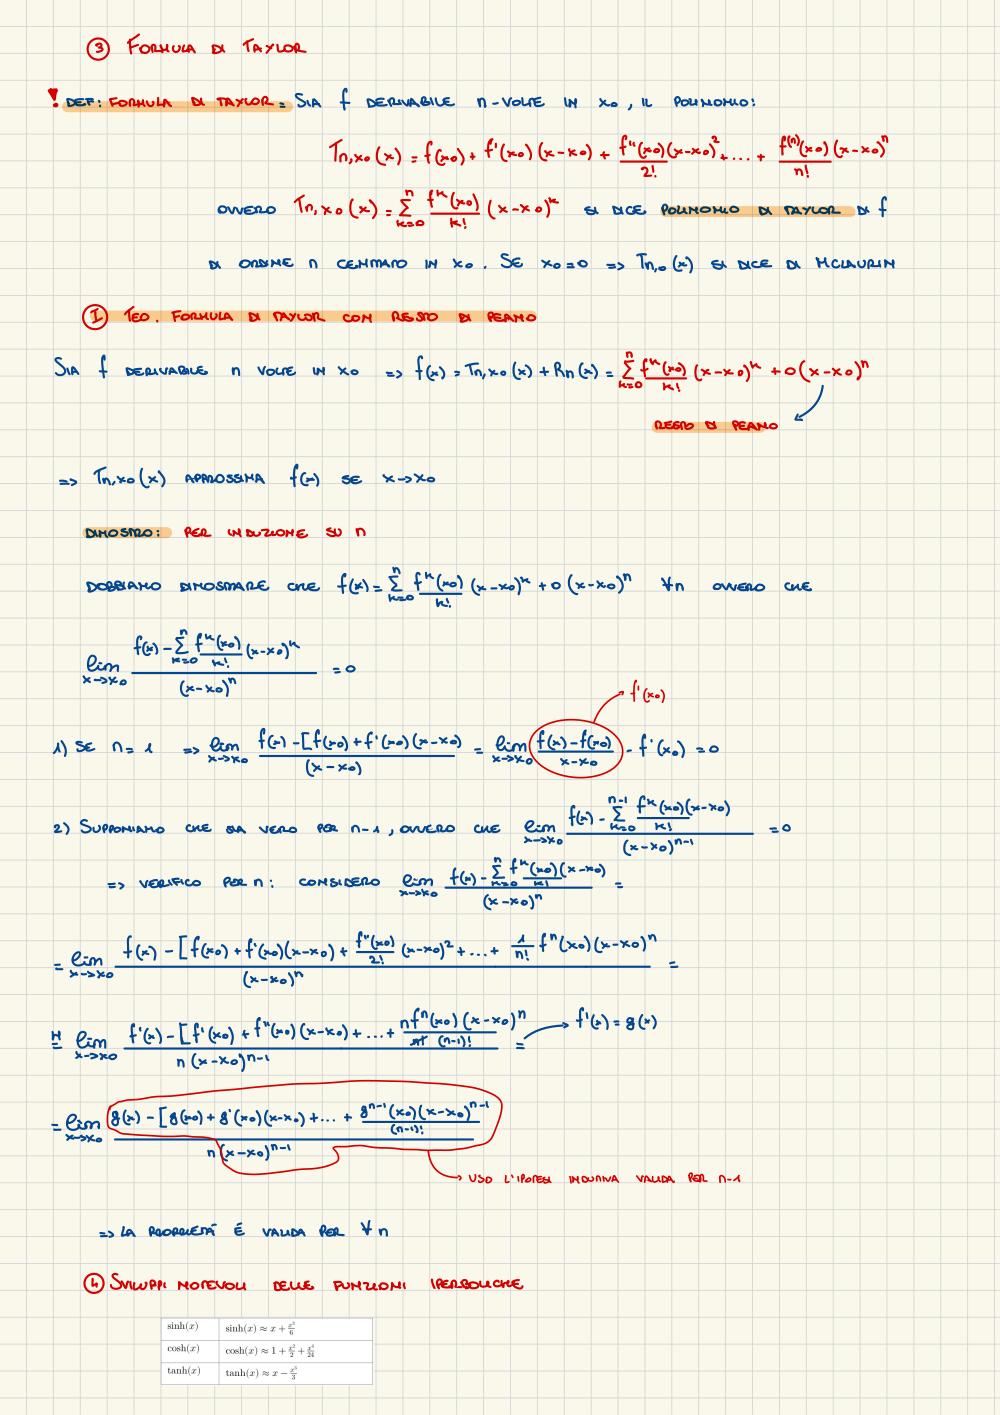 ③ FORMULA DI TAYLOR
! DEF: FORMULA DI TAYLOR = SIA f DERIVABILE n-VOLTE IN x₀, IL POLINOMIO:
Tn,x₀(x) = f(x₀) + f'(x₀)(x-x₀) + f''(x₀)(x-x₀)²/2! + ... + f⁽ⁿ⁾(x₀)(x-x₀)ⁿ/n!
OVVERO Tn,x₀(x) = Σ_{k=0}^{n} fᵏ(x₀)/k! (x-x₀)ᵏ SI DICE POLINOMIO DI TAYLOR DI f
DI ORDINE n CENTRATO IN x₀. SE x₀=0 => Tn,₀(x) SI DICE DI MCLAURIN
Ⓘ TEO. FORMULA DI TAYLOR CON RESTO DI PEANO
SIA f DERIVABILE n VOLTE IN x₀ => f(x) = Tn,x₀(x) + Rn(x) = Σ_{k=0}^{n} fᵏ(x₀)/k! (x-x₀)ᵏ + o(x-x₀)ⁿ
RESTO DI PEANO
=> Tn,x₀(x) APPROSSIMA f(x) SE x->x₀
DIMOSTRO: PER INDUZIONE SU n
DOBBIAMO DIMOSTRARE CHE f(x) = Σ_{k=0}^{n} fᵏ(x₀)/k! (x-x₀)ᵏ + o(x-x₀)ⁿ ∀n OVVERO CHE
lim_{x->x₀} (f(x) - Σ_{k=0}^{n} fᵏ(x₀)/k! (x-x₀)ᵏ)/(x-x₀)ⁿ = 0
f'(x₀)
1) SE n=1 => lim_{x->x₀} f(x) - [f(x₀) + f'(x₀)(x-x₀)/(x-x₀) = lim_{x->x₀} (f(x)-f(x₀))/(x-x₀) - f'(x₀) = 0
2) SUPPONIAMO CHE SIA VERO PER n-1, OVVERO CHE lim_{x->x₀} (f(x) - Σ_{k=0}^{n-1} fᵏ(x₀)/k! (x-x₀))/(x-x₀)ⁿ⁻¹ = 0
=> VERIFICO PER n: CONSIDERO lim_{x->x₀} (f(x) - Σ_{k=0}^{n} fᵏ(x₀)/k! (x-x₀))/(x-x₀)ⁿ =
= lim_{x->x₀} f(x) - [f(x₀) + f'(x₀)(x-x₀) + f''(x₀)/2! (x-x₀)² + ... + 1/n! fⁿ(x₀)(x-x₀)ⁿ/(x-x₀)ⁿ =
H= lim_{x->x₀} f'(x) - [f'(x₀) + f''(x₀)(x-x₀) + ... + nfⁿ(x₀)(x-x₀)ⁿ/n! (n-1)!/n(x-x₀)ⁿ⁻¹ = f'(x) = g(x)
= lim_{x->x₀} g(x) - [g(x₀) + g'(x₀)(x-x₀) + ... + gⁿ⁻¹(x₀)(x-x₀)ⁿ⁻¹/(n-1)!/n(x-x₀)ⁿ⁻¹
USO L'IPOTESI INDUTTIVA VALIDA PER n-1
=> LA PROPRIETÀ É VALIDA PER ∀n
④ SVILUPPI NOTEVOLI DELLE FUNZIONI IPERBOLICHE
sinh(x) sinh(x) ≈ x + x³/6
cosh(x) cosh(x) ≈ 1 + x²/2 + x⁴/24
tanh(x) tanh(x) ≈ x − x³/3